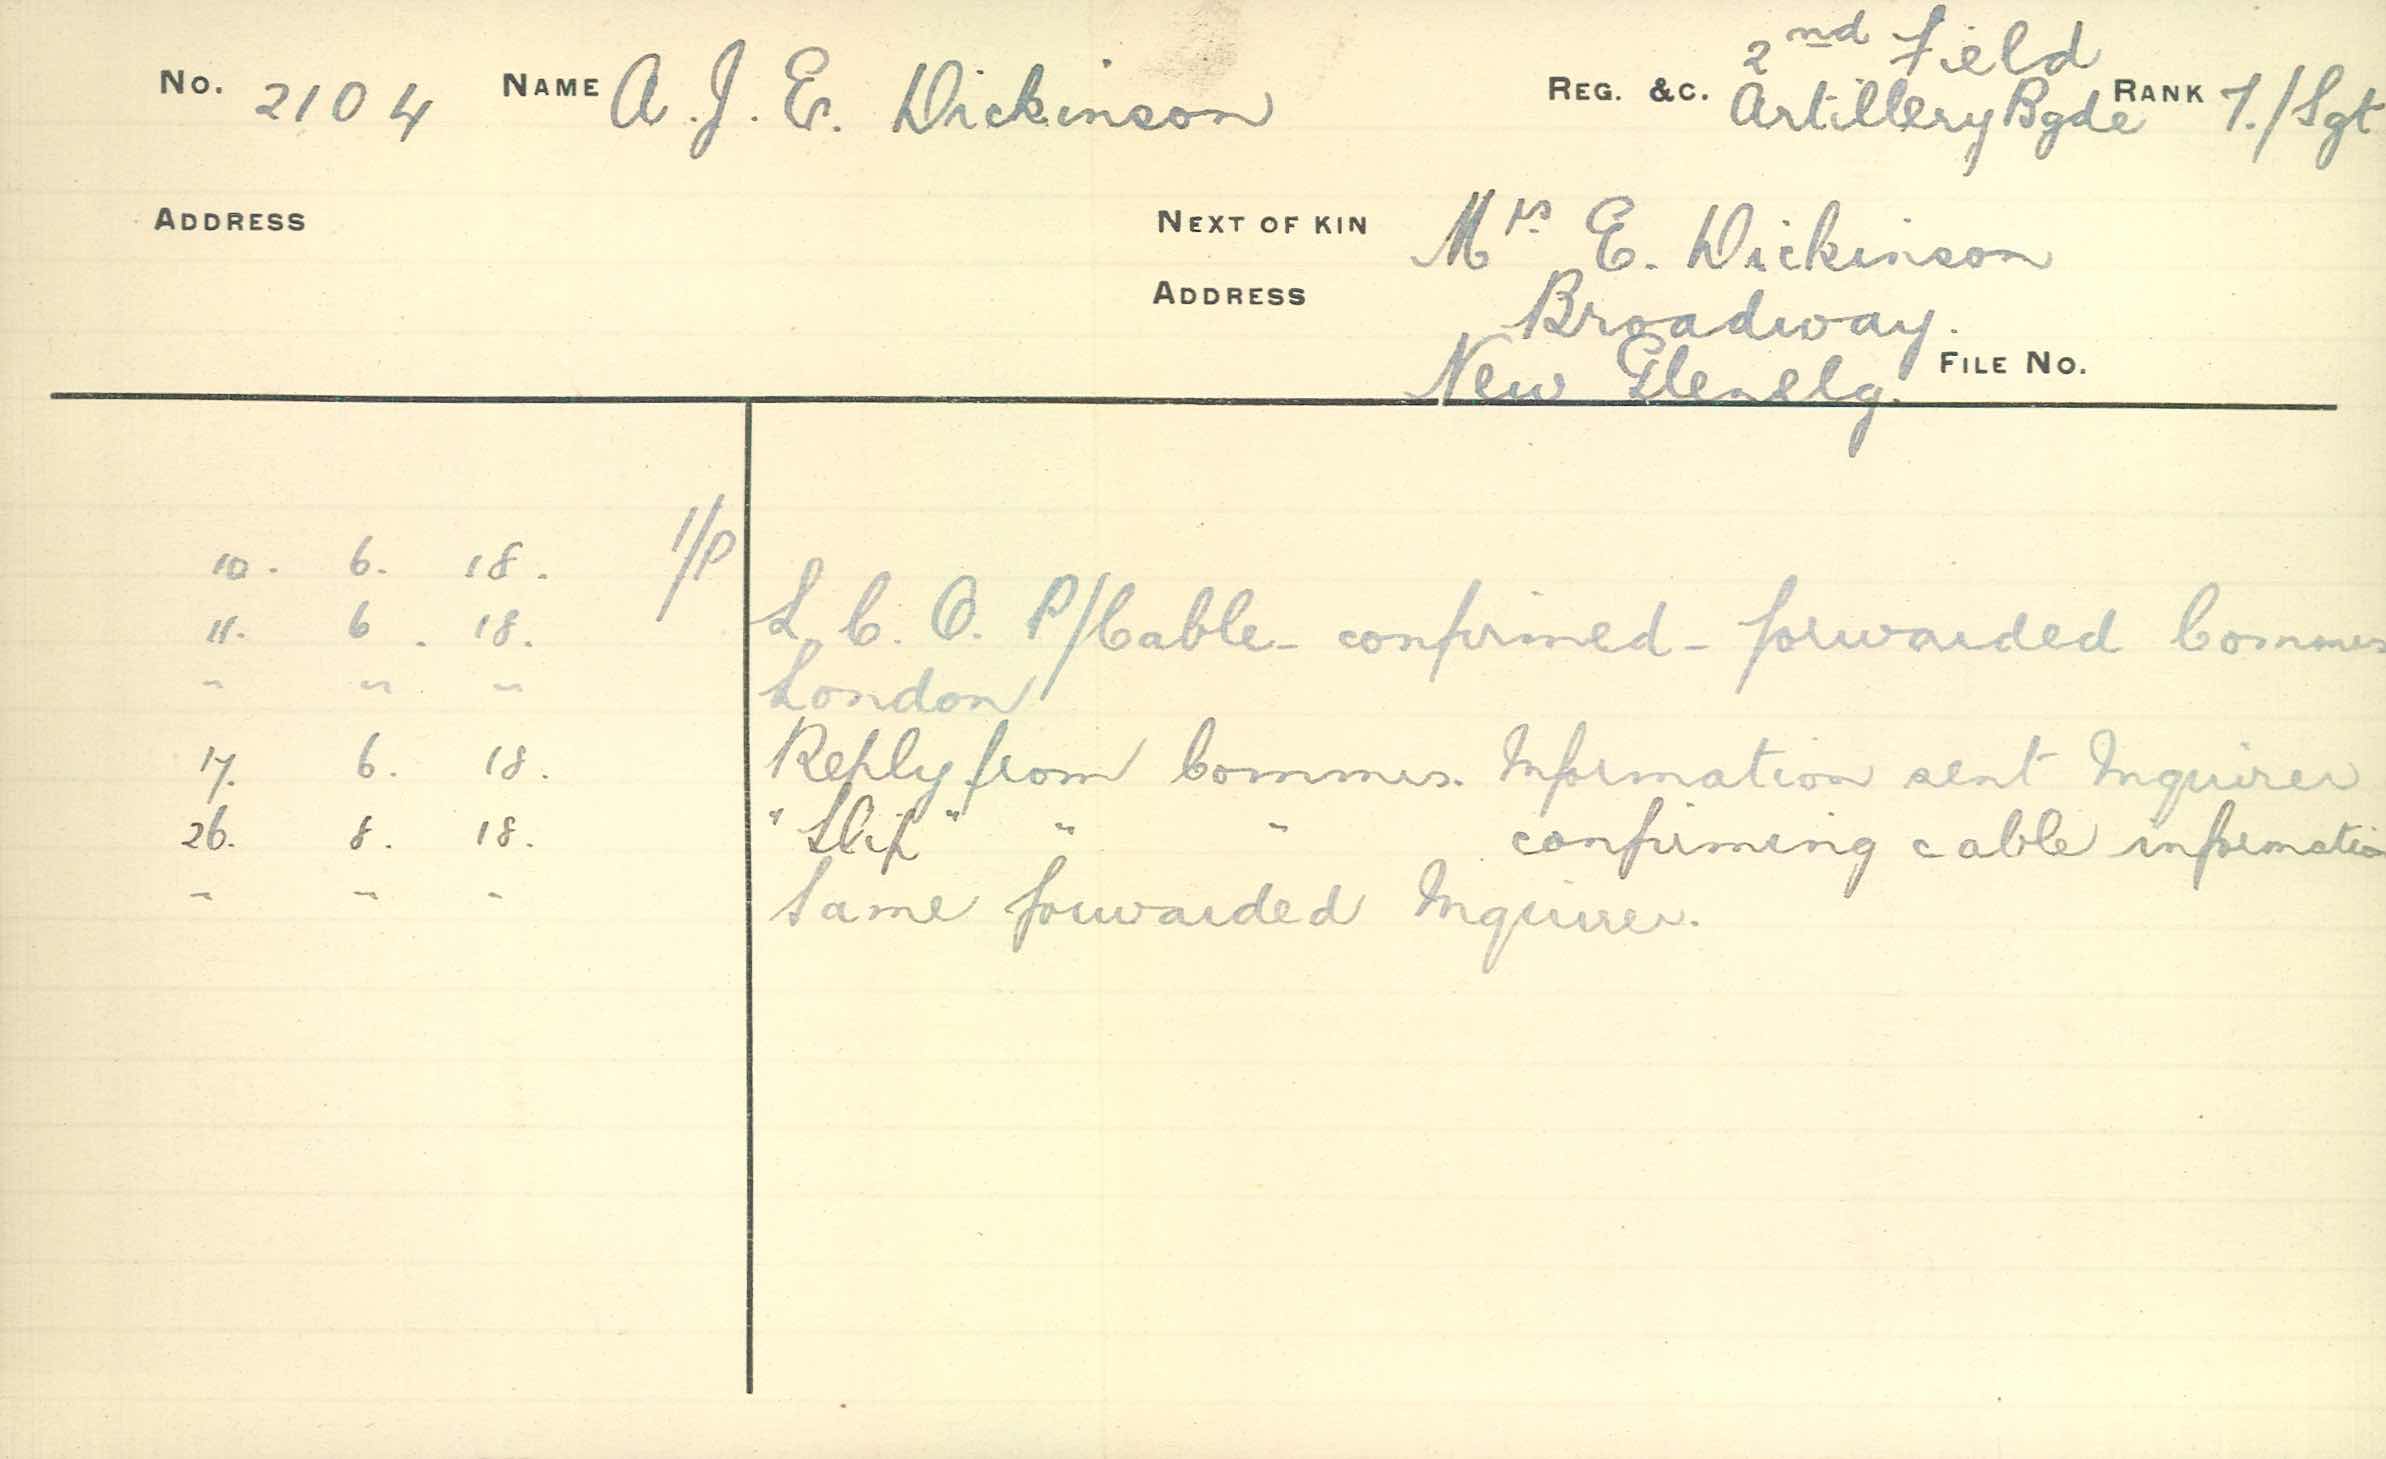 2nd Field
No. 2104 NAME A. J. E. Dickinson REG. &C. Artillery Bgde RANK T./Sgt
ADDRESS NEXT OF KIN Mrs E. Dickinson
ADDRESS Broadway.
New Glenelg. FILE No.
10. 6. 18. 1/P
11. 6. 18. L. C. O. P/Cable - confirmed - forwarded Commrs
" " " London
17. 6. 18. Reply from Commrs. Information sent Inquirer
26. 8. 18. "Slip" " " confirming cable informatio
" " " Same forwarded Inquirer.